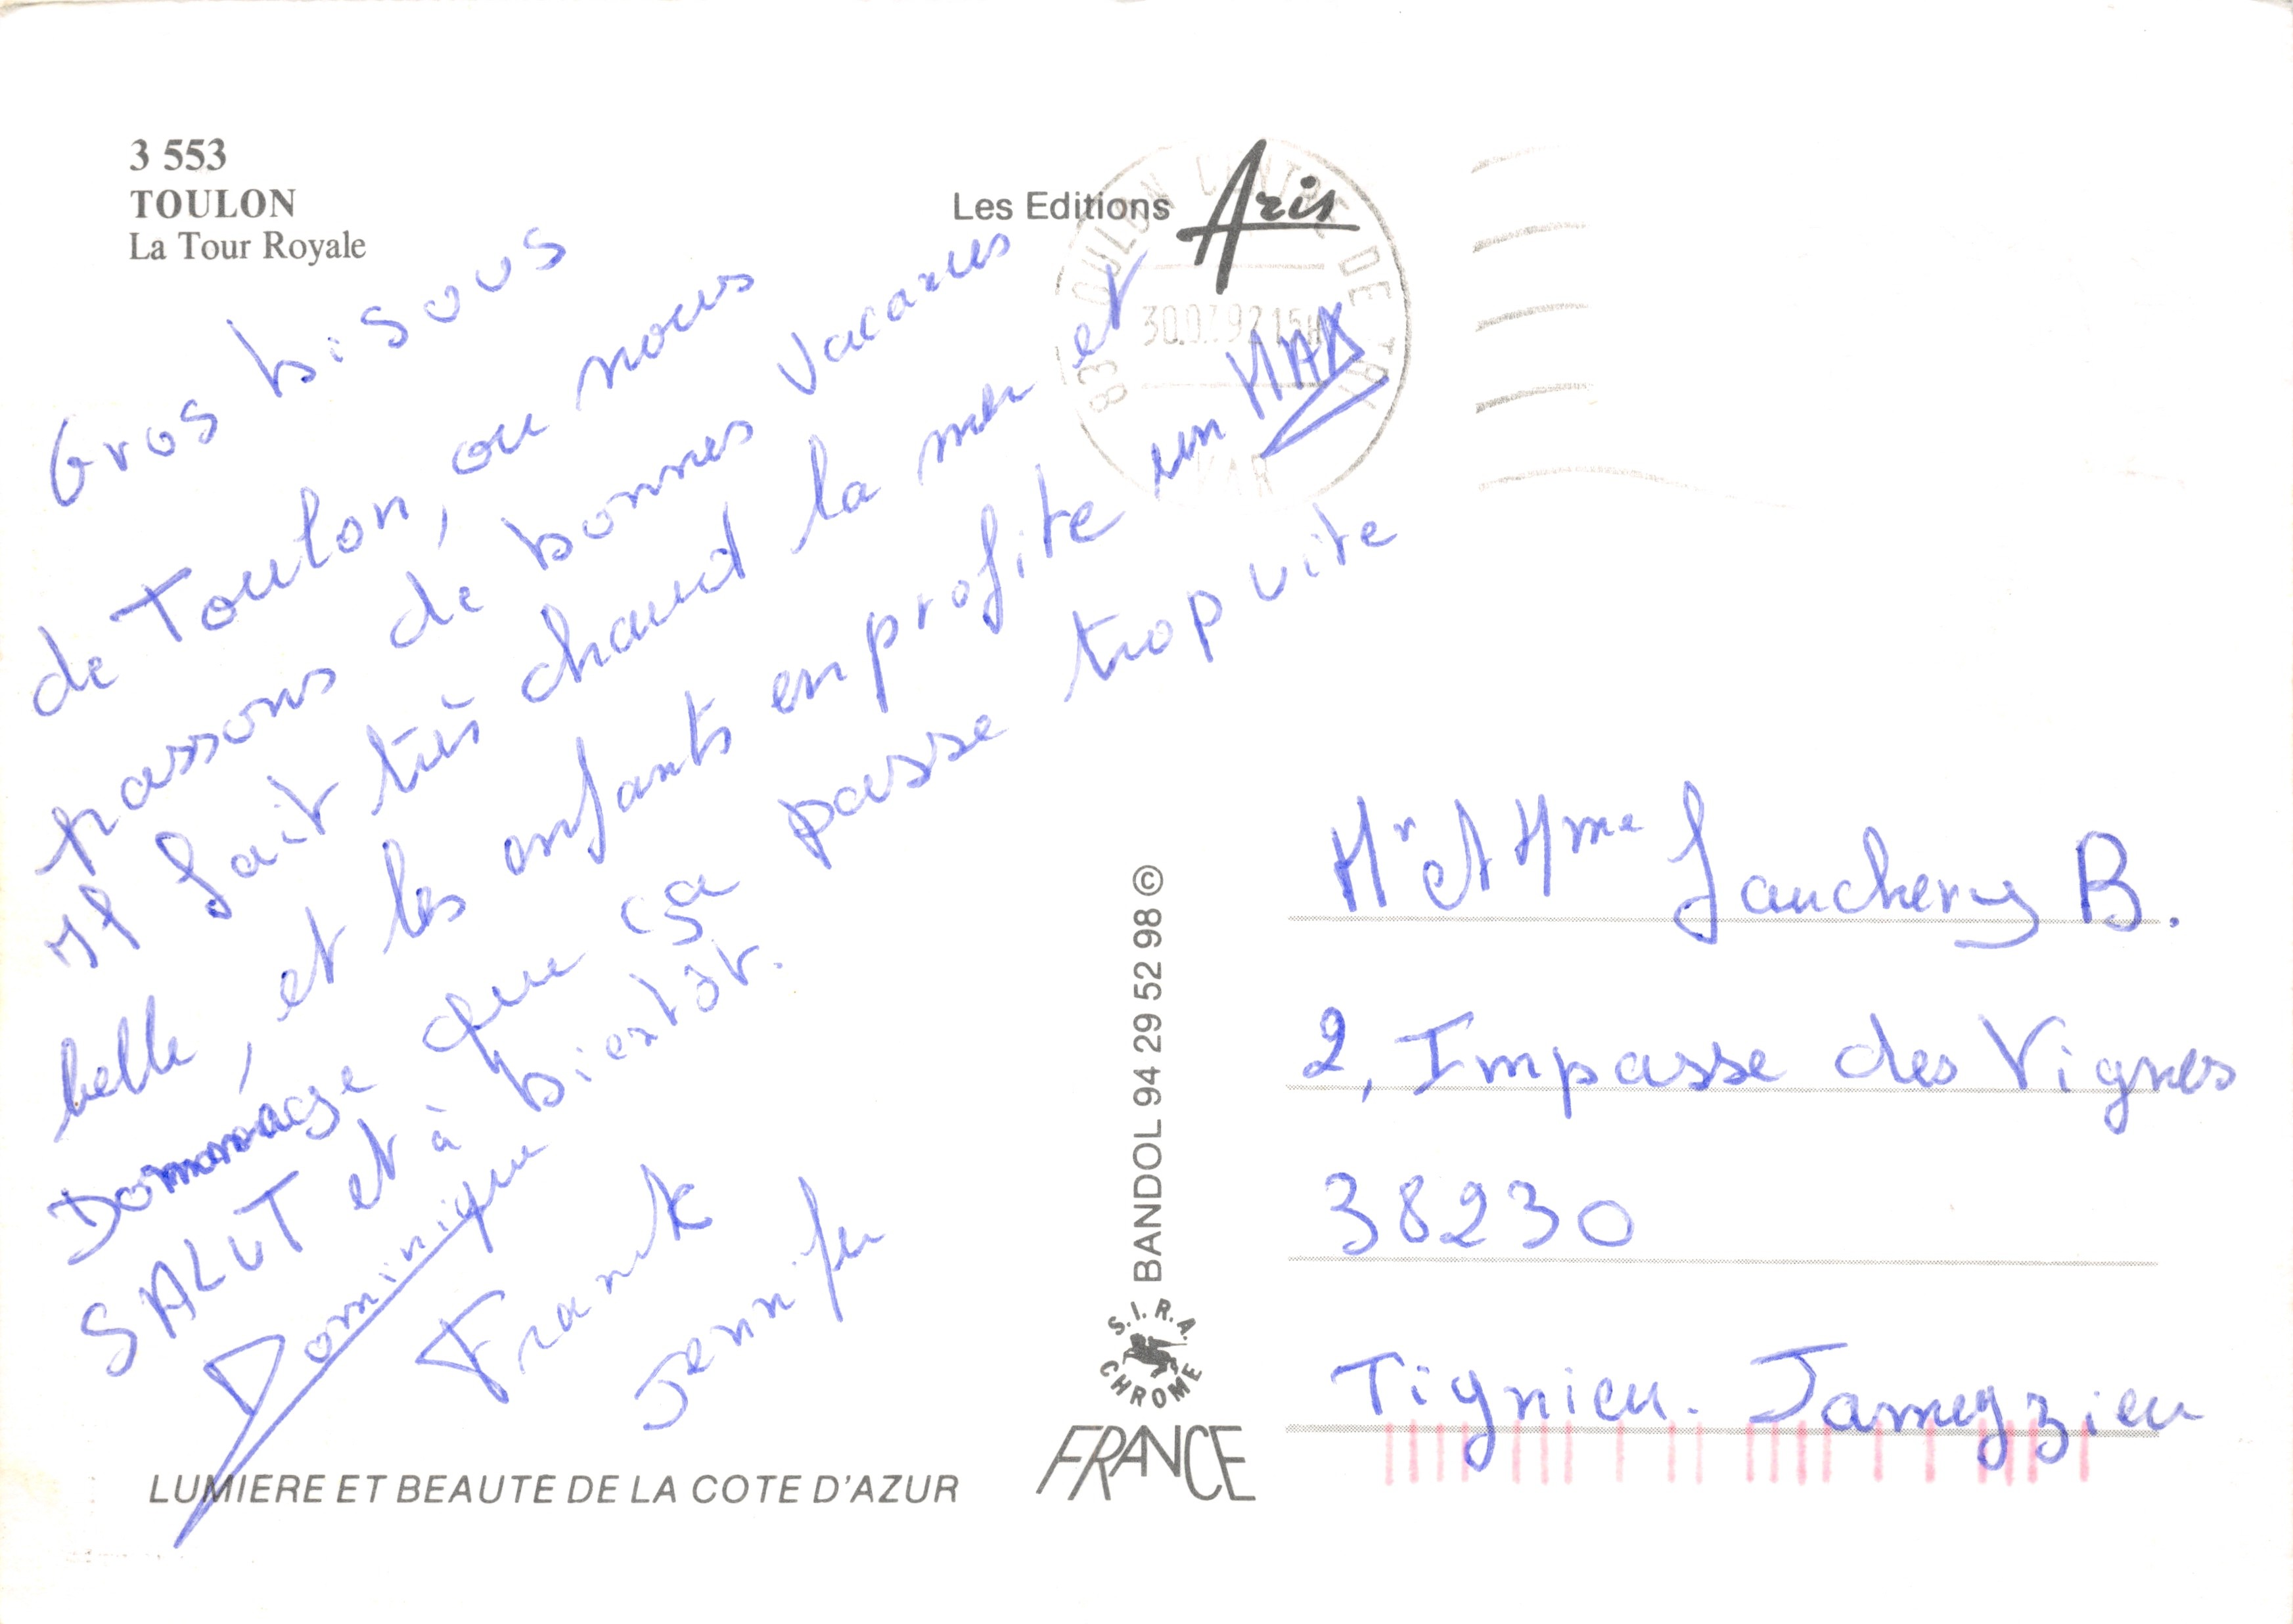 3 553
TOULON
La Tour Royale
Les Editions Aris
83 TOULON CENTRE DE TRI
30.07.92 15H
VAR
Gros bisous
de Toulon, ou nous
passons de bonnes vacances
Il fait très chaud la mer et
belle, et les enfants en profite un MAX
Dommage que ça passe trop vite
SALUT et à bientôt.
Dominique
Franck
Jennifer
BANDOL 94 29 52 98 ©
S.I.R.A.
CHROME
FRANCE
LUMIERE ET BEAUTE DE LA COTE D'AZUR
Mr et Mme Fauchery B.
2, Impasse des Vignes
38230
Tignieu. Jameyzieu